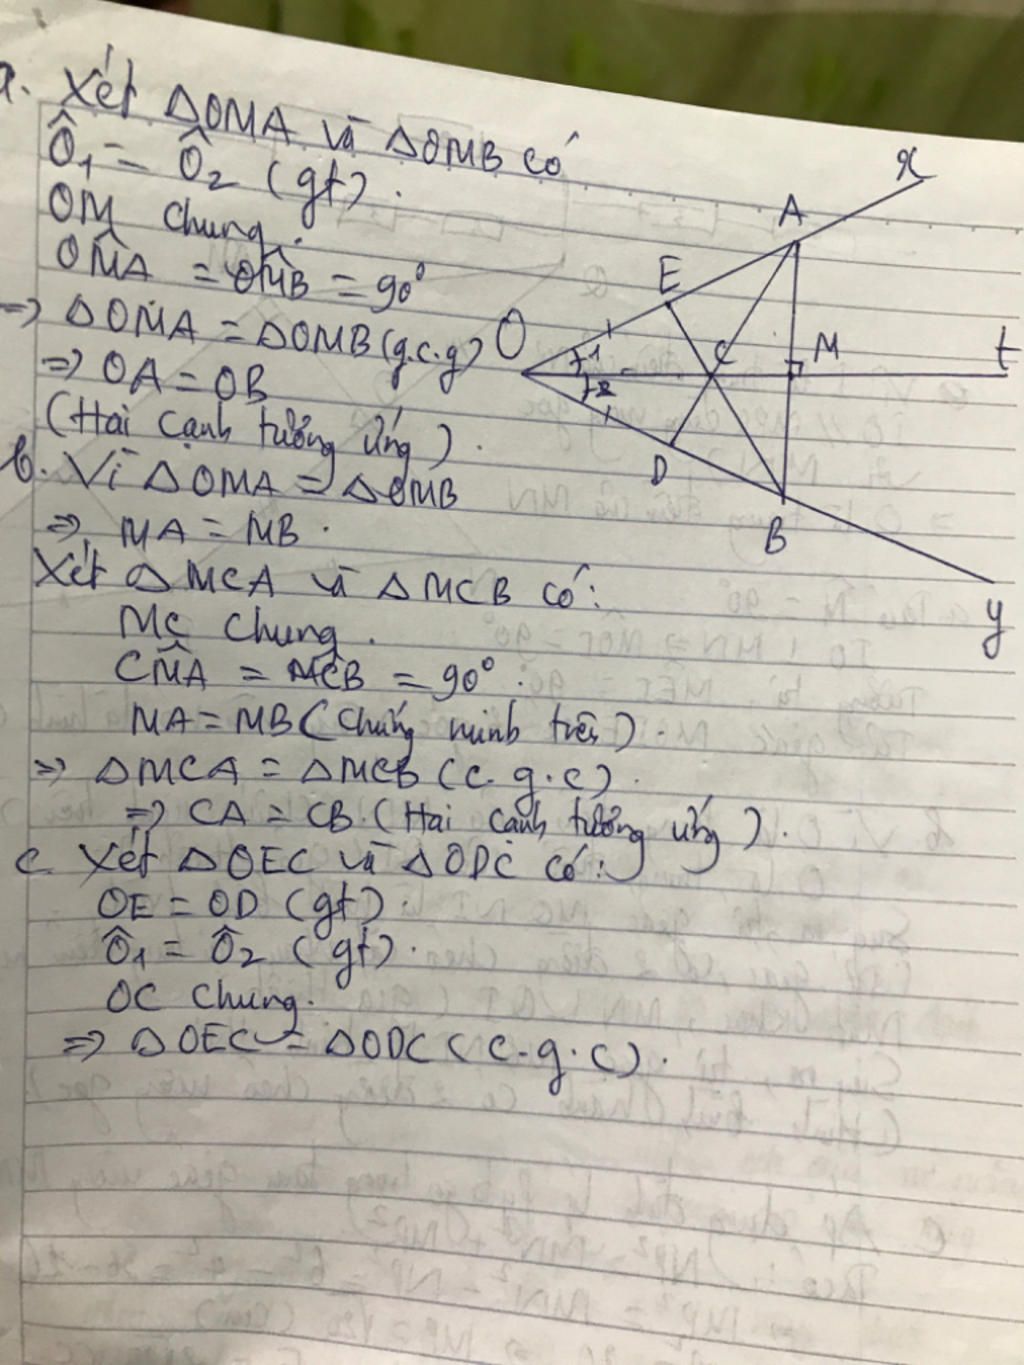 a. Xét ΔOMA và ΔOMB có
Ô₁ = Ô₂ (gt).
OM chung.
OM̂A = OM̂B = 90°
=> ΔOMA = ΔOMB (g.c.g)
=> OA = OB
(Hai cạnh tương ứng).
b. Vì ΔOMA = ΔOMB
=> MA = MB.
Xét ΔMCA và ΔMCB có:
MC chung.
CM̂A = MĈB = 90°.
MA = MB (chứng minh trên).
=> ΔMCA = ΔMCB (c.g.c).
=> CA = CB. (Hai cạnh tương ứng).
c. Xét ΔOEC và ΔODC có:
OE = OD (gt).
Ô₁ = Ô₂ (gt).
OC chung.
=> ΔOEC = ΔODC (c.g.c).
x
A
E
O
1
2
C
M
t
D
B
y